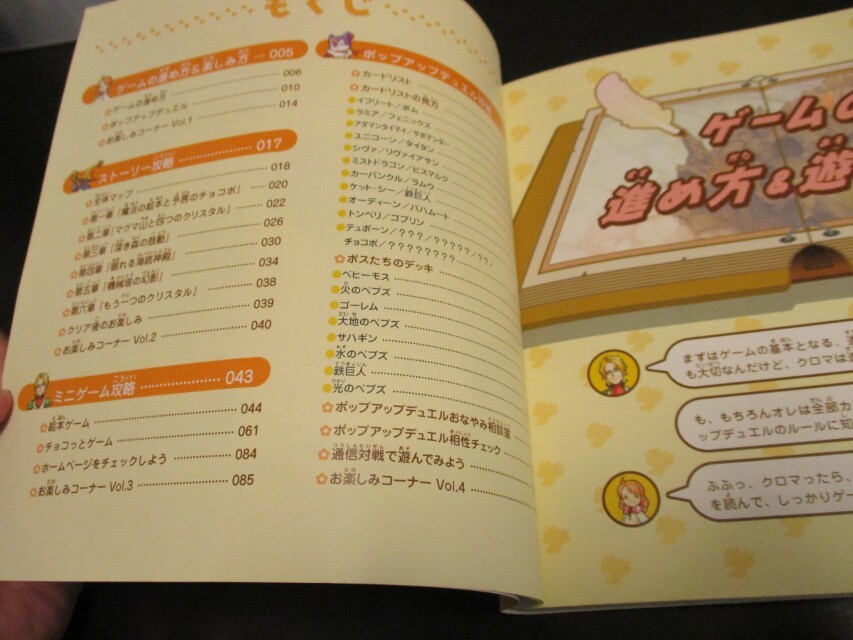 もくじ
ゲームの進め方&楽しみ方 … 005
ゲームの進め方 006
ポップアップデュエル 010
お楽しみコーナー Vol.1 014
ストーリー攻略 017
全体マップ 018
第一章「魔法の絵本と予言のチョコボ」 020
第二章「マグマ山と四つのクリスタル」 022
第三章「深き森の鼓動」 026
第四章「眠れる海底神殿」 030
第五章「機械塔の幻影」 034
第六章「もう一つのクリスタル」 038
クリア後のお楽しみ 039
お楽しみコーナー Vol.2 040
ミニゲーム攻略 043
絵本ゲーム 044
チョコっとゲーム 061
ホームページをチェックしよう 084
お楽しみコーナー Vol.3 085
ポップアップデュエル
カードリスト
カードリストの見方
イフリート/ボム
ラミア/フェニックス
アダマンタイマイ/サボテンダー
ユニコーン/タイタン
シヴァ/リヴァイアサン
ミストドラゴン/ビスマルク
カーバンクル/ラムウ
ケット・シー/鉄巨人
オーディーン/バハムート
トンベリ/ゴブリン
テュポーン/???/?????/??/
チョコボ/????????
ボスたちのデッキ
ベヒーモス
火のベブズ
ゴーレム
大地のベブズ
サハギン
水のベブズ
鉄巨人
光のベブズ
ポップアップデュエルおなやみ相談室
ポップアップデュエル相性チェック
通信対戦で遊んでみよう
お楽しみコーナー Vol.4
ゲームの
進め方&遊
まずはゲームの基本となる、
も大切なんだけど、クロマは
も、もちろんオレは全部カ
ップデュエルのルールに知
ふふっ、クロマったら、
を読んで、しっかりゲー